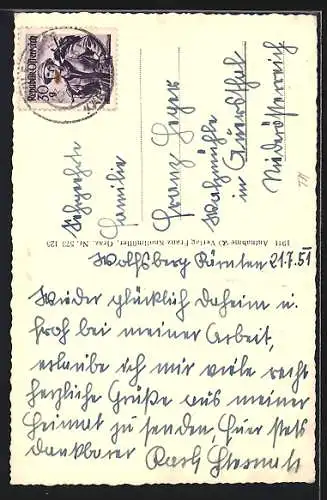 Republik Österreich
30 g
Sehrgeehrte
Familie
Franz Geyer
Walzmühle
in
Niederösterreich
1941 Aufnahme u. Verlag Franz Knollmüller, Graz. Nr. 573 123
Wolfsberg Kärnten 21.7.51
Wieder glücklich daheim u.
froh bei meiner Arbeit,
erlaube ich mir viele recht
herzliche Grüße aus meiner
Heimat zu senden, Euer stets
dankbarer